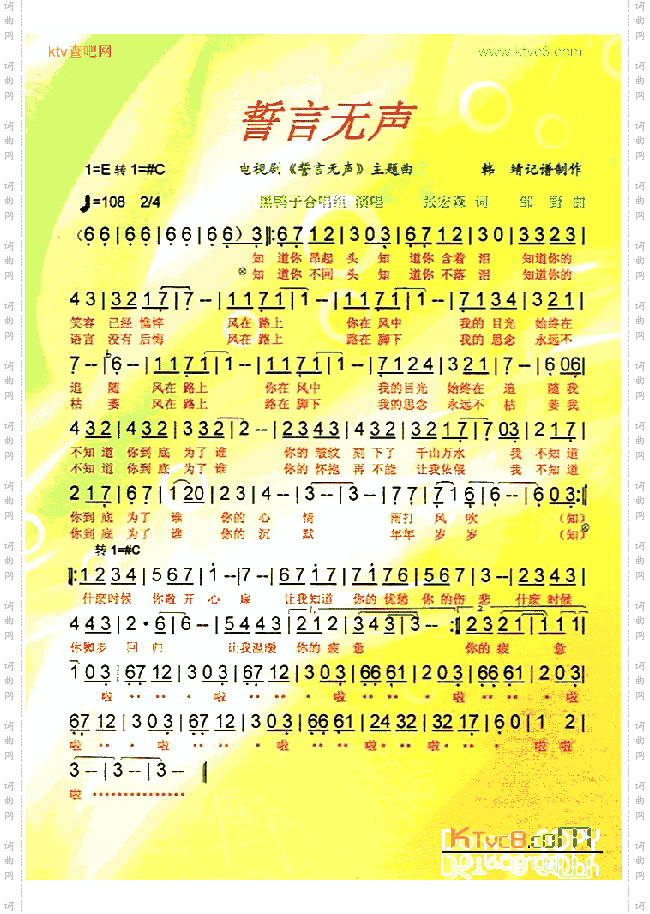 ktv查吧网 www.ktvc8.com
誓言无声
1=E 转 1=#C 电视剧《誓言无声》主题曲 韩 靖记谱制作
♩=108 2/4 黑鸭子合唱组 演唱 张宏森 词 邹 野 曲
(66|66|66|66|66)3|:6712|303|6712|30|3323|
知 道你 昂起 头 知 道你 含着 泪 知道你的
※知 道你 不回 头 知 道你 不落 泪 知道你的
43|3217|7--|1171|1--|1171|1--|7134|321|
笑容 已经 憔悴 风在 路上 你在 风中 我的 目光 始终在
语言 没有 后悔 风在 路上 路在 脚下 我的 思念 永远不
7--|6--|1171|1--|1171|1--|7134|321|7--|606|
追 随 风在 路上 你在 风中 我的目光 始终在 追 随我
枯 萎 风在 路上 路在 脚下 我的思念 永远不 枯 萎我
432|432|332|332|2--|2343|432|3217|703|217|
不知道 你到 底 为了 谁 你的 皱纹 刻 下了 千山万水 我 不知道
不知道 你到 底 为了 谁 你的 怀抱 再 不能 让我依偎 我 不知道
217|67|120|23|4--|3--|3--|77|716|6--|603:|
你到 底 为了 谁 你的 心 情 雨打 风 吹 (知)
你到 底 为了 谁 你的 沉 默 年年 岁 岁 (知)※
转 1=#C
|:1234|567|1--|7--|1767|7176|5667|3--|2343|
什麽时候 你敞 开 心 扉 让我知道 你的 忧愁 你 的伤 悲 什麽 时候
443|2·6|6--|5443|212|343|3--:|2321|111|
你脚步 回 归 让我温暖 你的 疲 惫 你的 疲 惫
103|6712|303|6712|303|6661|203|6661|203|
啦 ·· ·· · 啦 ·· · 啦 ·· · 啦 ·· · 啦
6712|303|6712|303|6661|2432|3217|601 2|
啦 ·· · 啦 ·· · 啦 ·· · 啦 啦
3--|3--|3--||
啦 ················
KTvc8.cOM